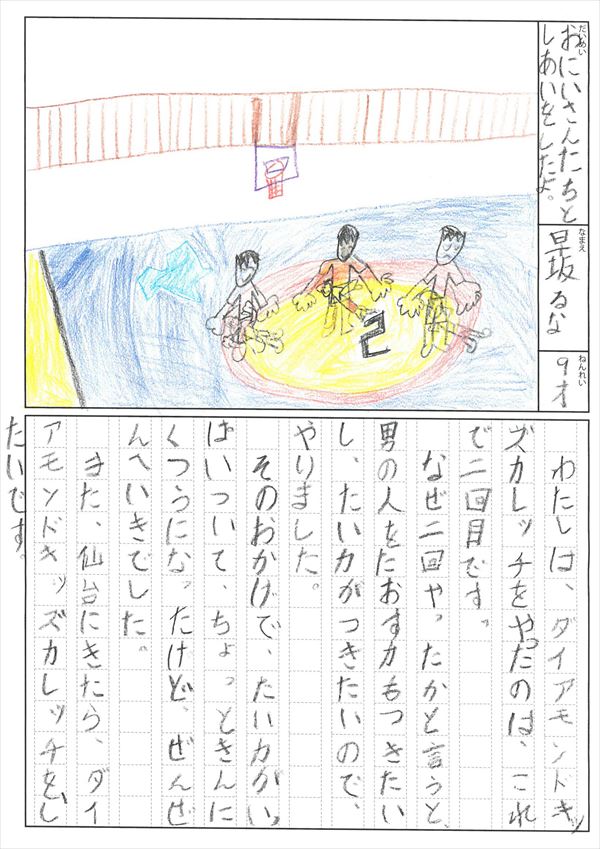 だいめい
おにいさんたちと
しあいをしたよ。
なまえ
早坂るな
ねんれい
9才
2
わたしは、ダイアモンドキッ
ズカレッチをやったのは、これ
で二回目です。
なぜ二回やったかと言うと、
男の人をたおす力もつきたい
し、たい力がつきたいので、
やりました。
そのおかげで、たい力がいっ
ぱいついて、ちょっときんに
くつうになったけど、ぜんぜ
んへいきでした。
また、仙台にきたら、ダイ
アモンドキッズカレッチをし
たいです。